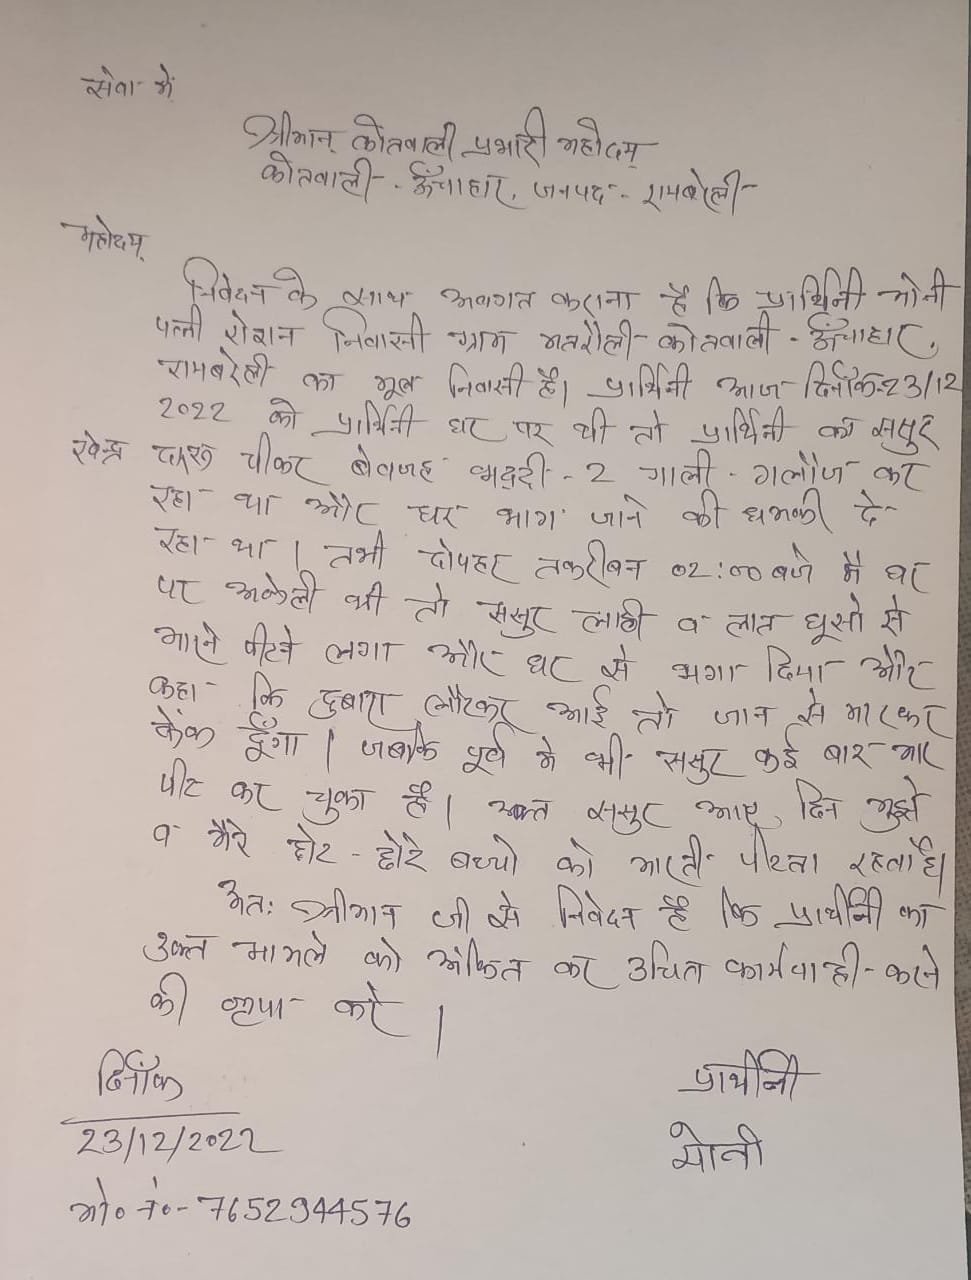 सेवा में
श्रीमान् कोतवाली प्रभारी महोदय
कोतवाली - ऊँचाहार, जनपद - रायबरेली
महोदय,
निवेदन के साथ अवगत कराना है कि प्रार्थिनी मोनी
पत्नी रोशन निवासी ग्राम मतरौली कोतवाली - ऊँचाहार,
रायबरेली का मूल निवासी है। प्रार्थिनी आज दिनाँक-23/12
2022 को प्रार्थिनी घर पर थी तो प्रार्थिनी का ससुर
रवेन्द्र दारू पीकर बेवजह भद्दी - 2 गाली - गलौज कर
रहा था और घर भाग जाने की धमकी दे
रहा था। तभी दोपहर तकरीबन 02:00 बजे मै घर
पर अकेली थी तो ससुर लाठी व लात घूसो से
मारने पीटने लगा और घर से भगा दिया और
कहा कि दुबारा लौटकर आई तो जान से मारकर
फेंक दूँगा। जबकि पूर्व मे भी ससुर कई बार मार
पीट कर चुका है। उक्त ससुर आए दिन मुझे
व मेरे छोट - छोटे बच्चो को मारती पीटता रहता है।
अतः श्रीमान जी से निवेदन है कि प्रार्थीनी का
उक्त मामले को अंकित कर उचित कार्यवाही करने
की कृपा करे।
दिनाँक
प्रार्थीनी
23/12/2022
मोनी
मो० नं०- 7652944576